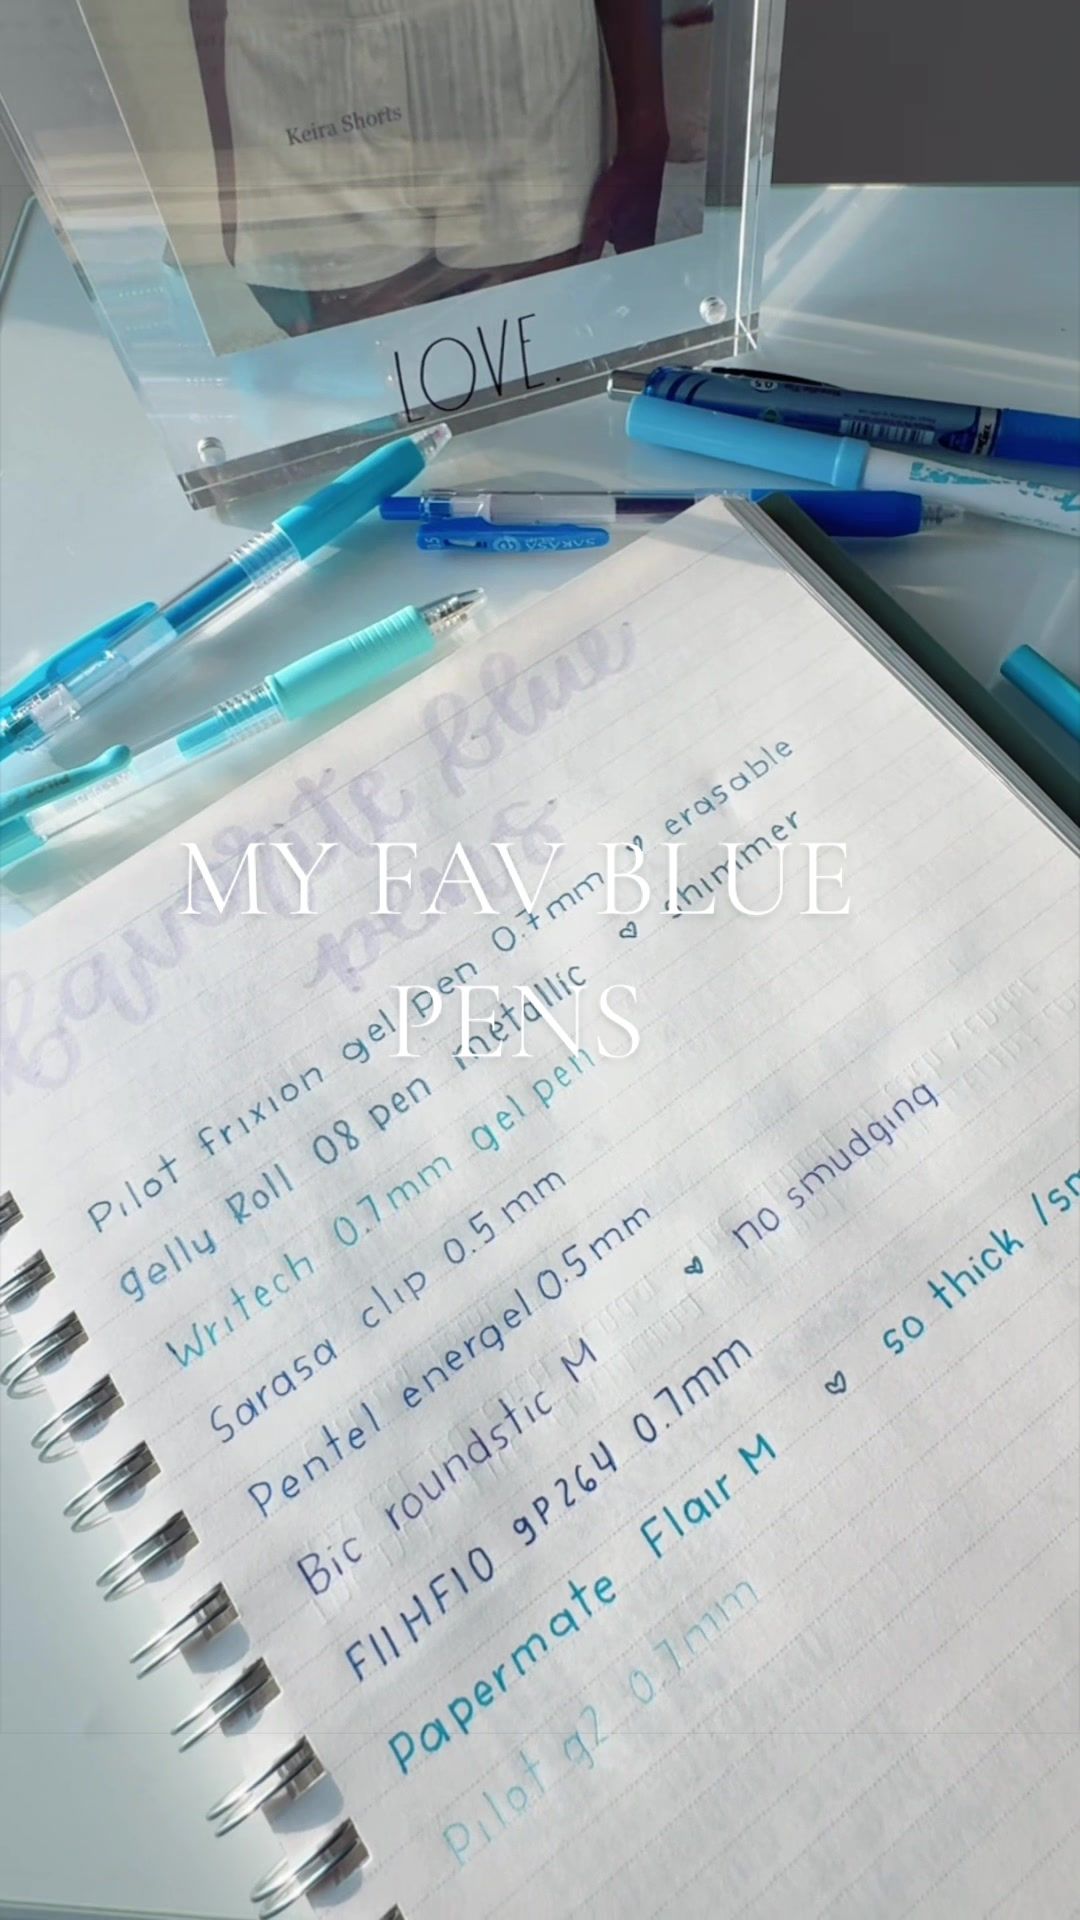 Keira Shorts
LOVE.
0.5
SARASA
0.5
favorite blue
pens
MY FAV BLUE
PENS
Pilot frixion gel pen 0.7mm ♡ erasable
gelly Roll 08 pen metallic ♡ shimmer
Writech 0.7mm gel pen
Sarasa clip 0.5mm
Pentel energel 0.5mm
Bic roundstic M ♡ no smudging
FIIHFIO gP264 0.7mm
papermate Flair M ♡ so thick /sm
Pilot g2 0.7mm